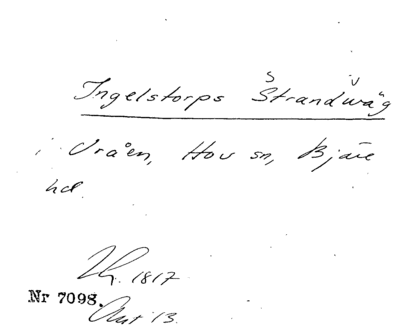 Ingelstorps Strandwäg
i Vråen, Hov sn, Bjäre
hd.
1817
Nr 7098.
Akt 13.